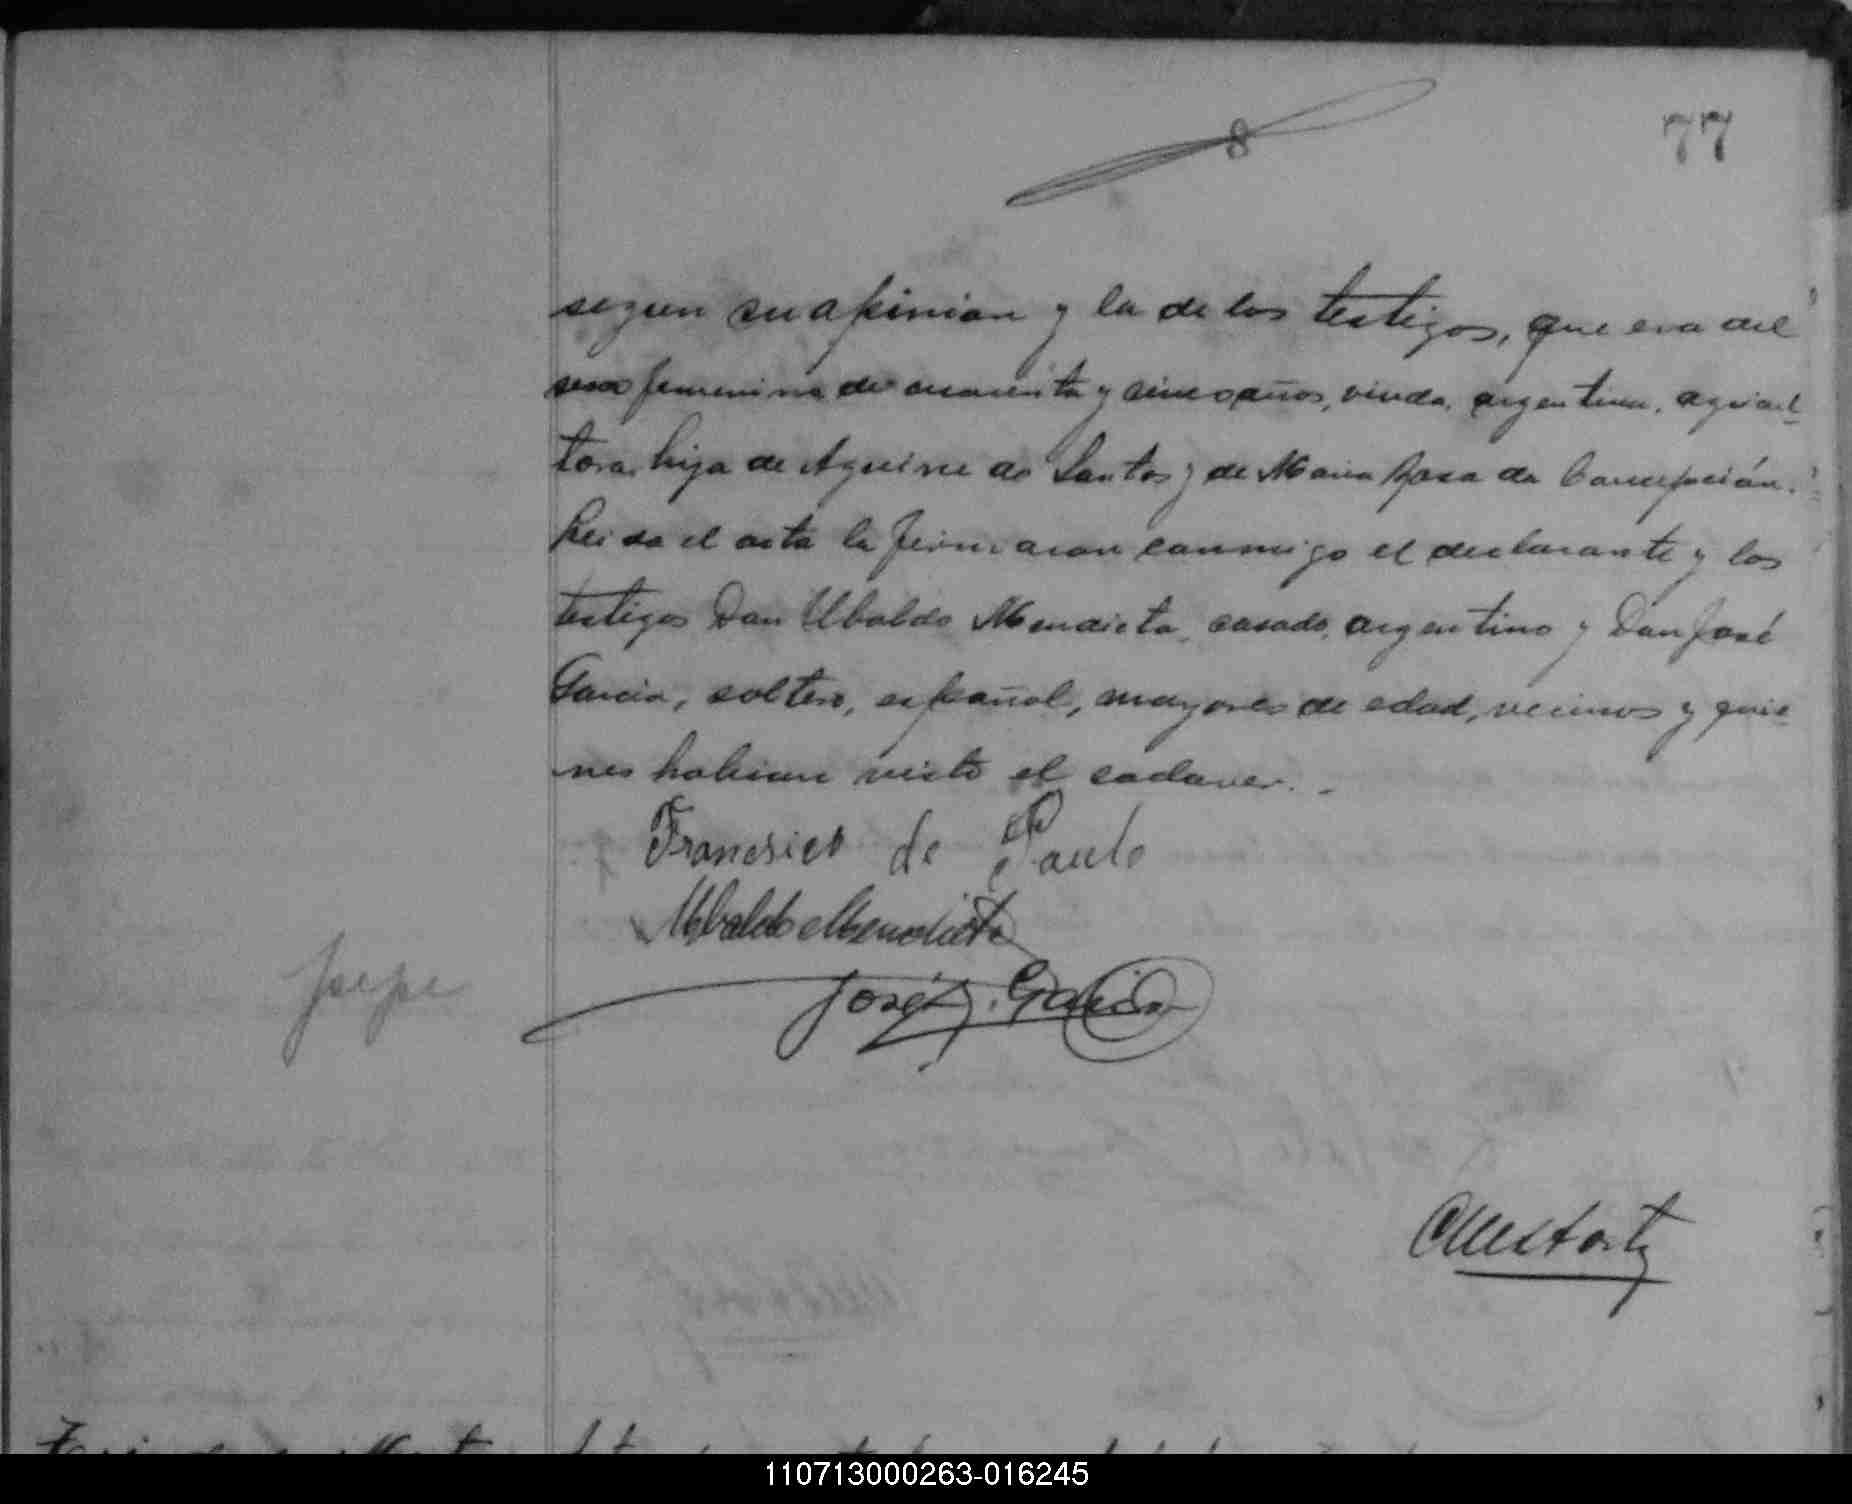 8
77
segun su opinion y la de los testigos, que era del
sexo femenino de cuarenta y cinco años, viuda, argentina, agricul-
tora, hija de Aguirre do Santos y de Maria Rosa da Concepción.
Leida el acta la firmaron conmigo el declarante y los
testigos Don Ubaldo Mendieta, casado, argentino y Don José
Garcia, soltero, español, mayores de edad, vecinos y quie-
nes habian visto el cadaver.
Francisico de Paulo
Ubaldo Mendieta
José Garcia
110713000263-016245